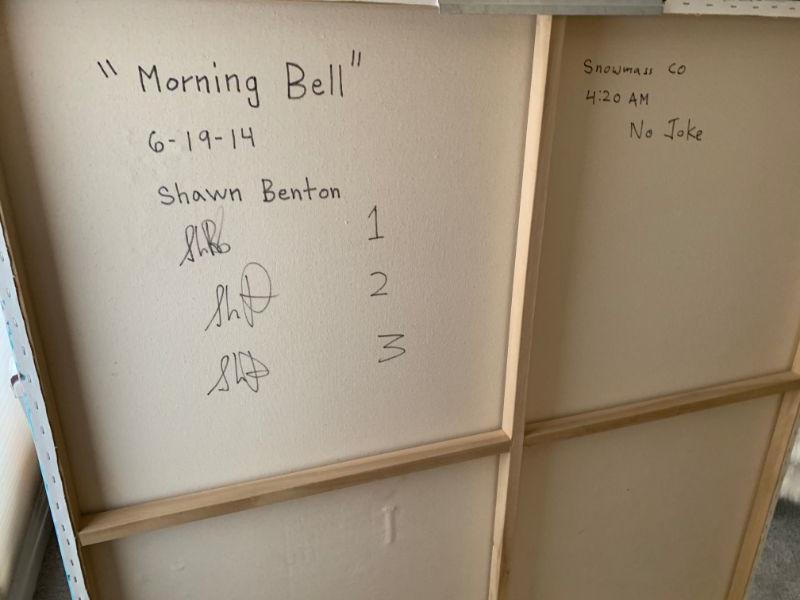 "Morning Bell"
6-19-14
Shawn Benton
1
2
3
Snowmass CO
4:20 AM
No Joke